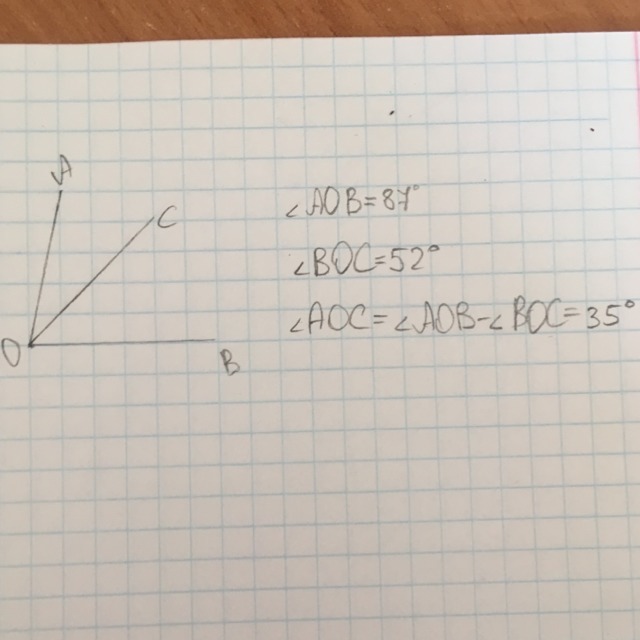 A
C
O
B
∠AOB=87°
∠BOC=52°
∠AOC=∠AOB-∠BOC=35°